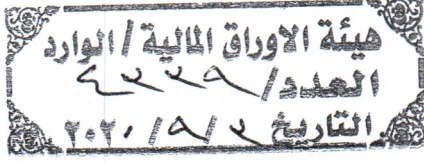 هيئة الاوراق المالية / الوارد
العدد / ٤٢٢٩
التاريخ ٢ / ٩ / ٢٠٢٠